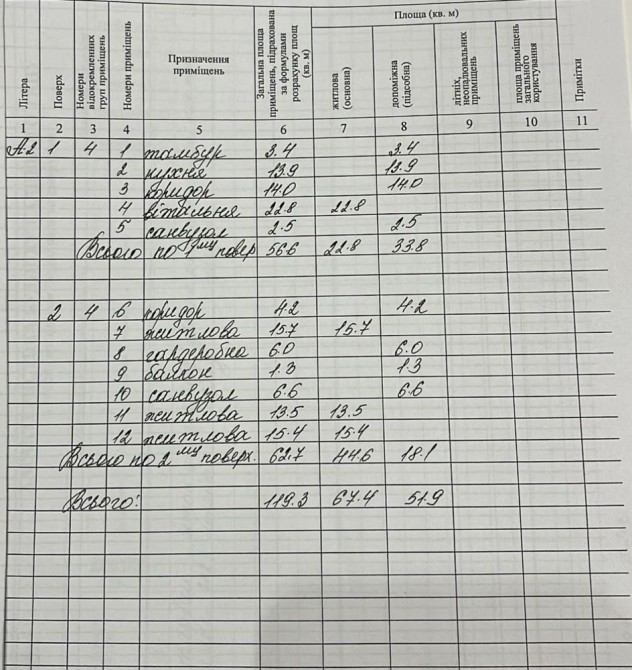 Літера
Поверх
Номери відокремлених груп приміщень
Номери приміщень
Призначення приміщень
Загальна площа приміщень, підрахована за формулами розрахунку площ (кв. м)
Площа (кв. м)
житлова (основна)
допоміжна (підсобна)
літніх, неопалювальних приміщень
площа приміщень загального користування
Примітки
1 2 3 4 5 6 7 8 9 10 11
А2 1 4 1 тамбур 3.4 3.4
2 кухня 13.9 13.9
3 коридор 14.0 14.0
4 вітальня 22.8 22.8
5 санвузол 2.5 2.5
Всього по 1му повер 56.6 22.8 33.8
2 4 6 коридор 4.2 4.2
7 житлова 15.7 15.7
8 гардеробна 6.0 6.0
9 балкон 1.3 1.3
10 санвузол 6.6 6.6
11 житлова 13.5 13.5
12 житлова 15.4 15.4
Всього по 2му поверх. 62.7 44.6 18.1
Всього: 119.3 67.4 51.9